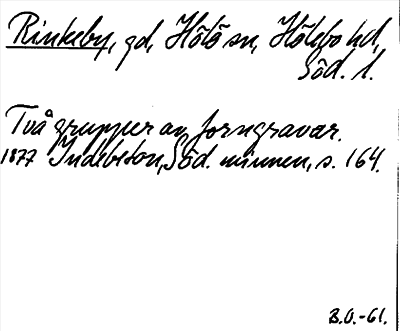 Rinkeby, gd, Hölö sn, Hölebo hd,
Söd. l.
Två grupper av forngravar.
1877 Indebetou, Söd. minnen, s. 164.
B.O.-61.